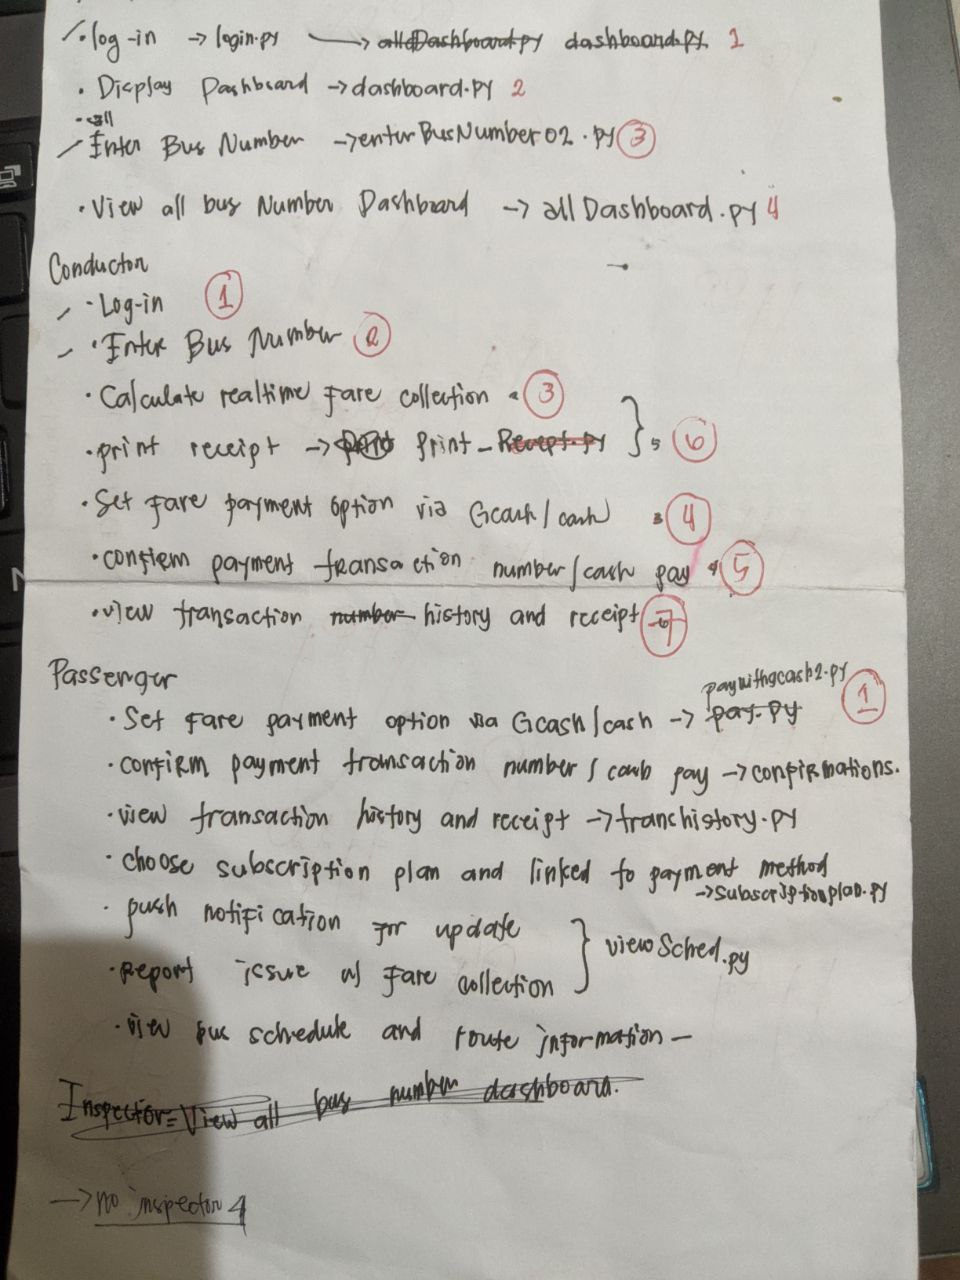 · log-in → login.py → allDashboard.py dashboard.py 1
· Display Dashboard → dashboard.py 2
· all
Enter Bus Number → enterBusNumber02.py 3
· View all bus Number Dashboard → allDashboard.py 4
Conductor
· Log-in 1
· Enter Bus Number 2
· Calculate realtime Fare collection 3
· print receipt → Print_Recept.py } 5 6
· Set Fare payment option via Gcash/cash 3 4
· confirm payment transaction number/cash pay 4 5
· view transaction number history and receipt 7
Passenger
paywithgcash2.py 1
· Set Fare payment option via Gcash/cash → pay.py
· confirm payment transaction number/cash pay → confirmations.
· view transaction history and receipt → tranchistory.py
· choose subscription plan and linked to payment method
→ subscriptionplan.py
· push notification for update
} viewSched.py
· Report issue w/ Fare collection
· view bus schedule and route information –
Inspector = View all bus number dashboard.
→ no inspector